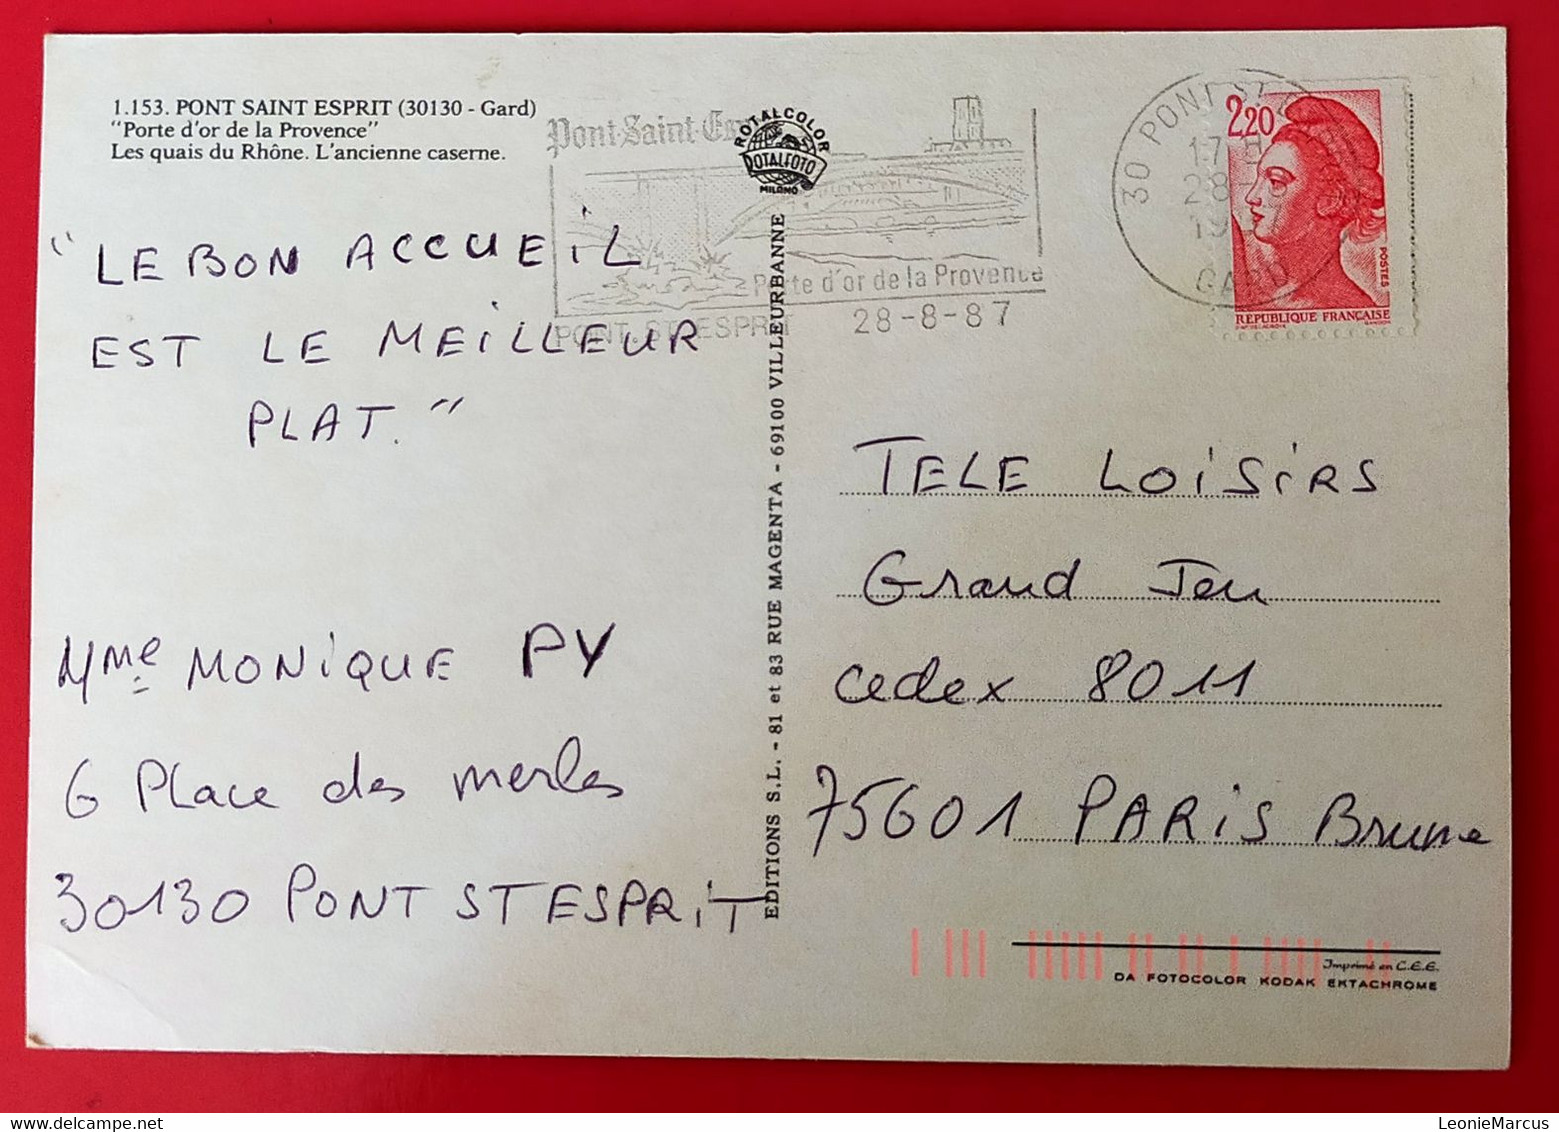 1.153. PONT SAINT ESPRIT (30130 - Gard)
"Porte d'or de la Provence"
Les quais du Rhône. L'ancienne caserne.
"LE BON ACCUEIL
EST LE MEILLEUR
PLAT."
Mme MONIQUE PY
6 Place des merles
30130 PONT ST ESPRIT
Pont-Saint-Esprit
Porte d'or de la Provence
PONT-ST-ESPRIT 28-8-87
ROTALCOLOR
ROTALFOTO
MILANO
EDITIONS S.L. - 81 et 83 RUE MAGENTA - 69100 VILLEURBANNE
30 PONT ST
17
28
19
GARD
2,20
POSTES
REPUBLIQUE FRANÇAISE
TELE LOISIRS
Grand Jeu
cedex 8011
75601 PARIS Brune
Imprimé en C.E.E.
DA FOTOCOLOR KODAK EKTACHROME
LeonieMarcus